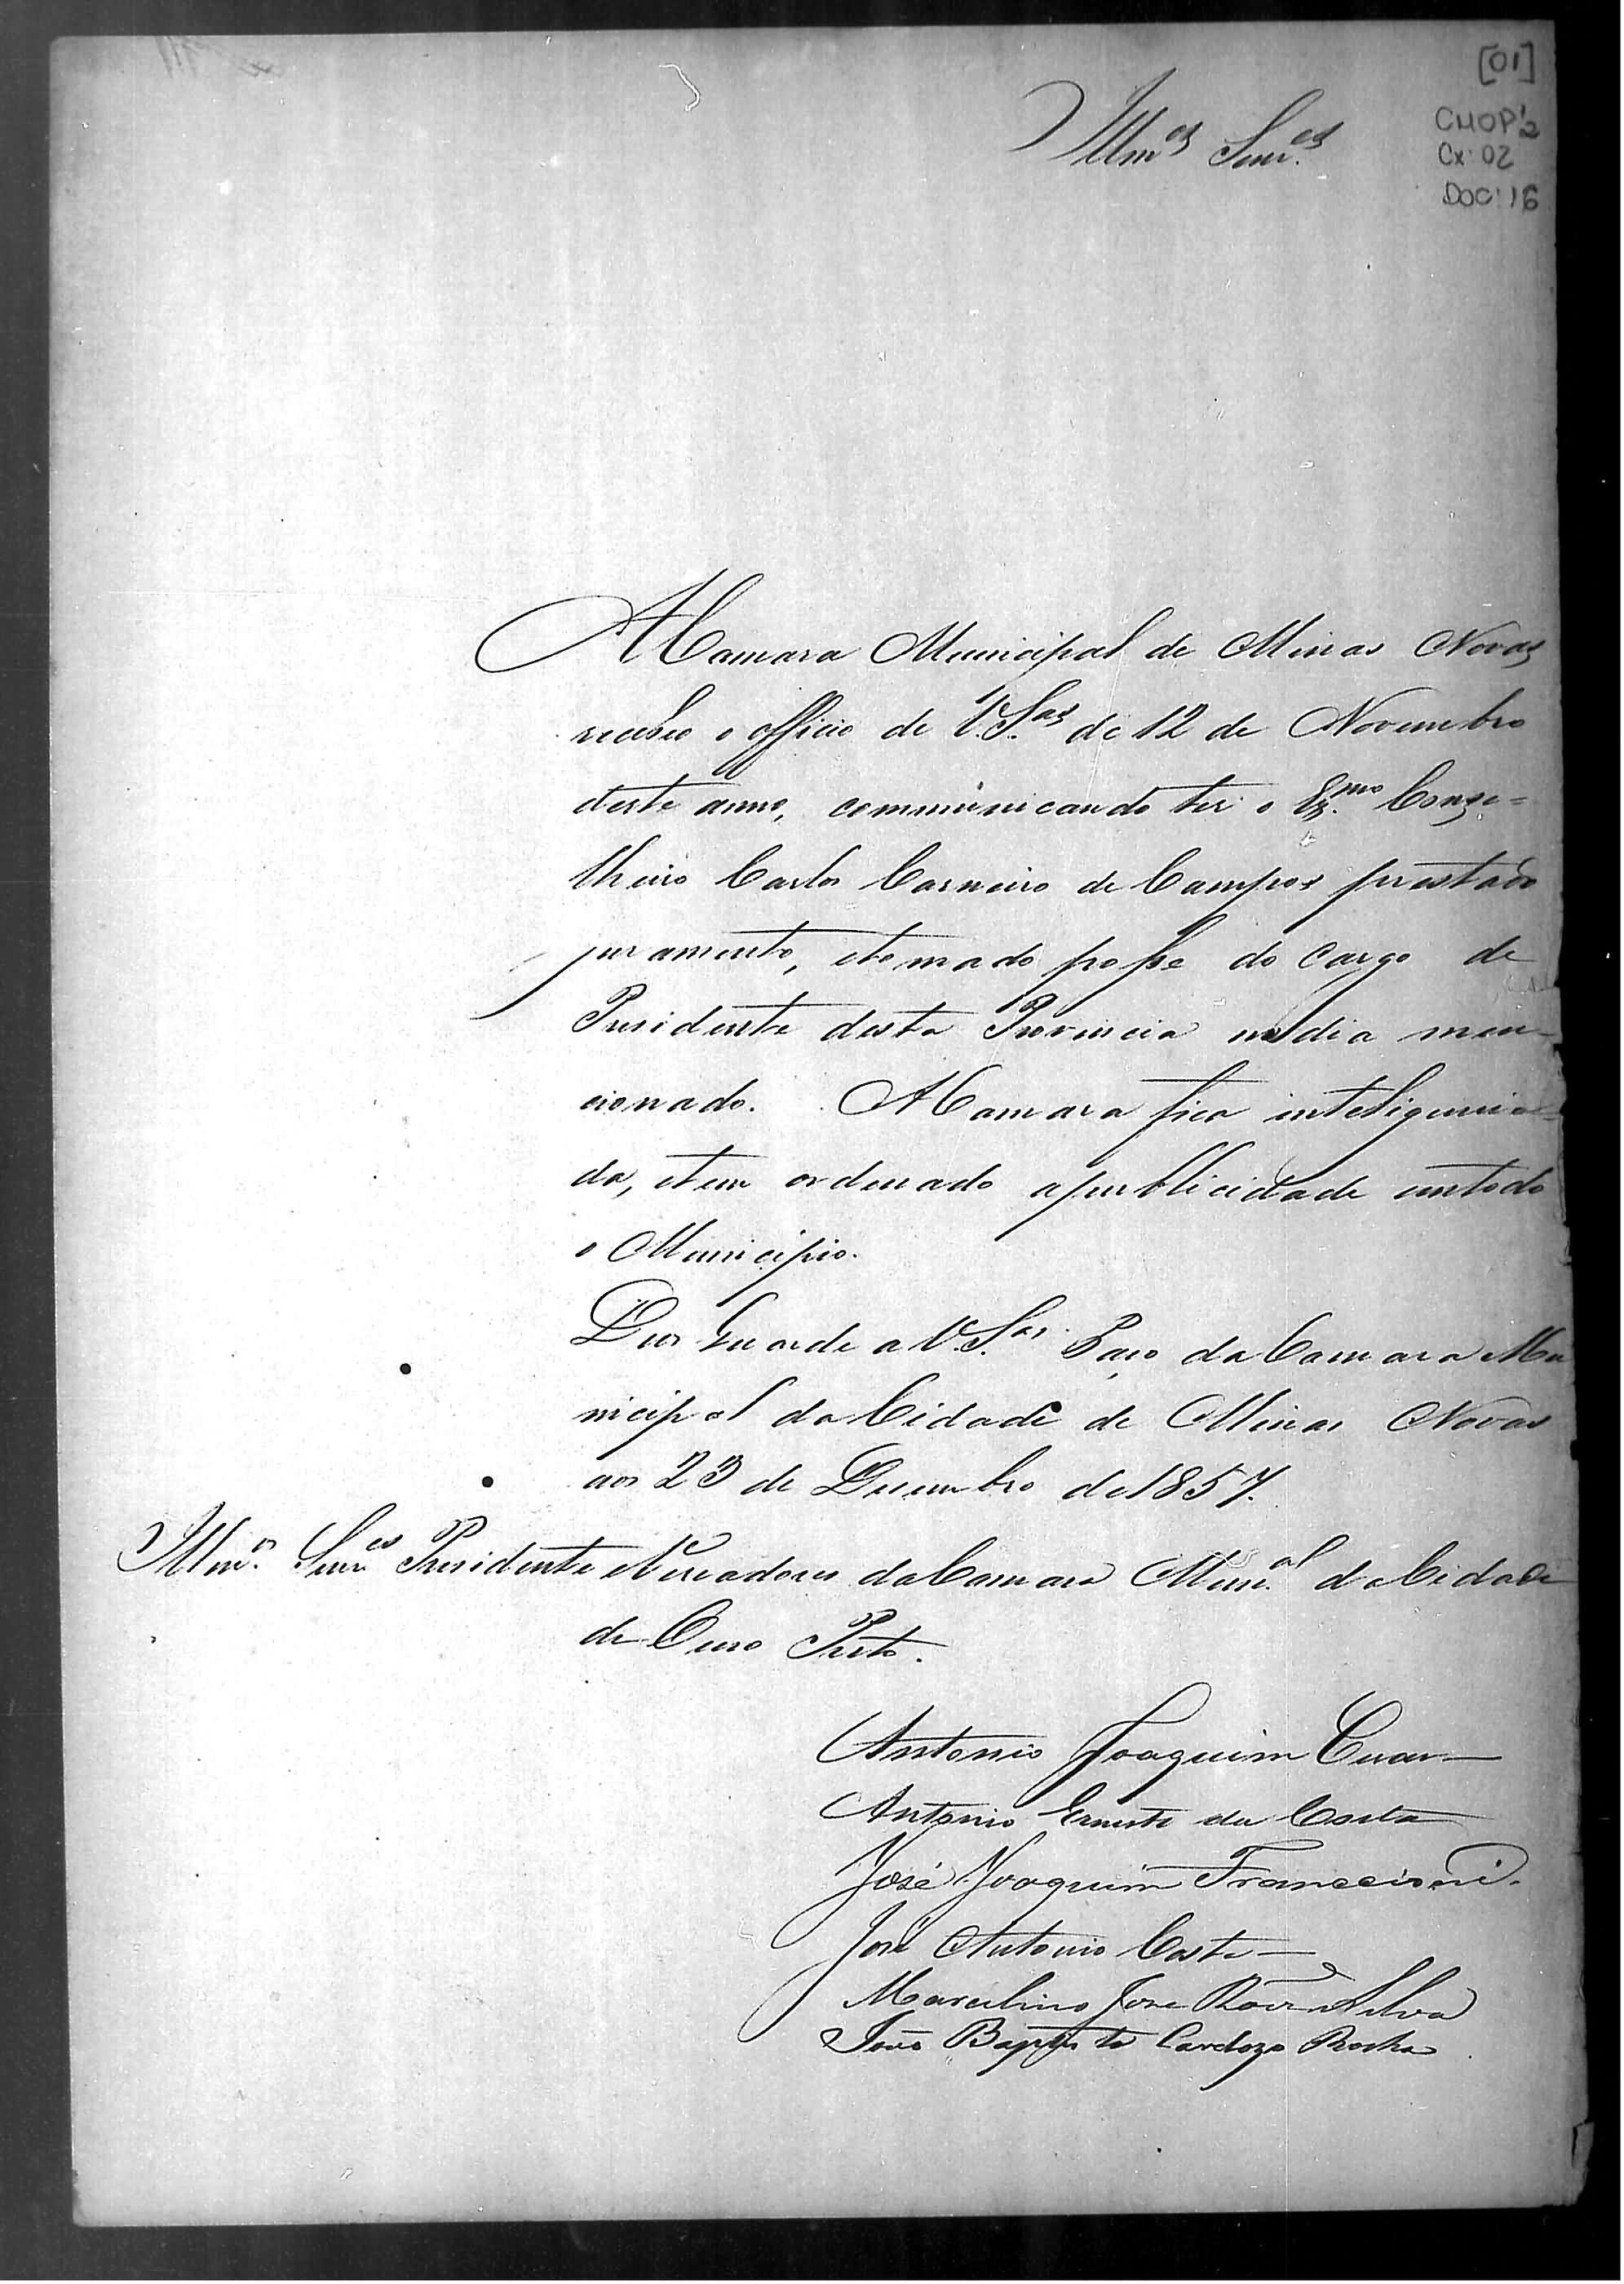 [01]
CMOP'2
Cx: 02
DOC: 16
Illm.os Senr.es
A Camara Municipal de Minas Novas
recebeo o officio de V.S.as de 12 de Novembro
deste anno, communicando ter o Ex.mo Conse=
lheiro Carlos Carneiro de Campos prestado
juramento, e tomado posse do cargo de
Presidente desta Provincia no dia men-
cionado. A Camara fica inteligencia-
da, e tem ordenado a publicidade em todo
o Municipio.
Deos Guarde a V.S.as Paço da Camara Mu
nicipal da Cidade de Minas Novas
aos 23 de Dezembro de 1857.
Illm.os Senr.es Presidente e Vereadores da Camara Mun.al da Cidade
de Ouro Preto.
Antonio Joaquim
Antonio Ernesto da Costa
José Joaquim Francisconi.
José Antonio Costa
Marcelino Jose Silva
João Baptista Cardozo Rocha